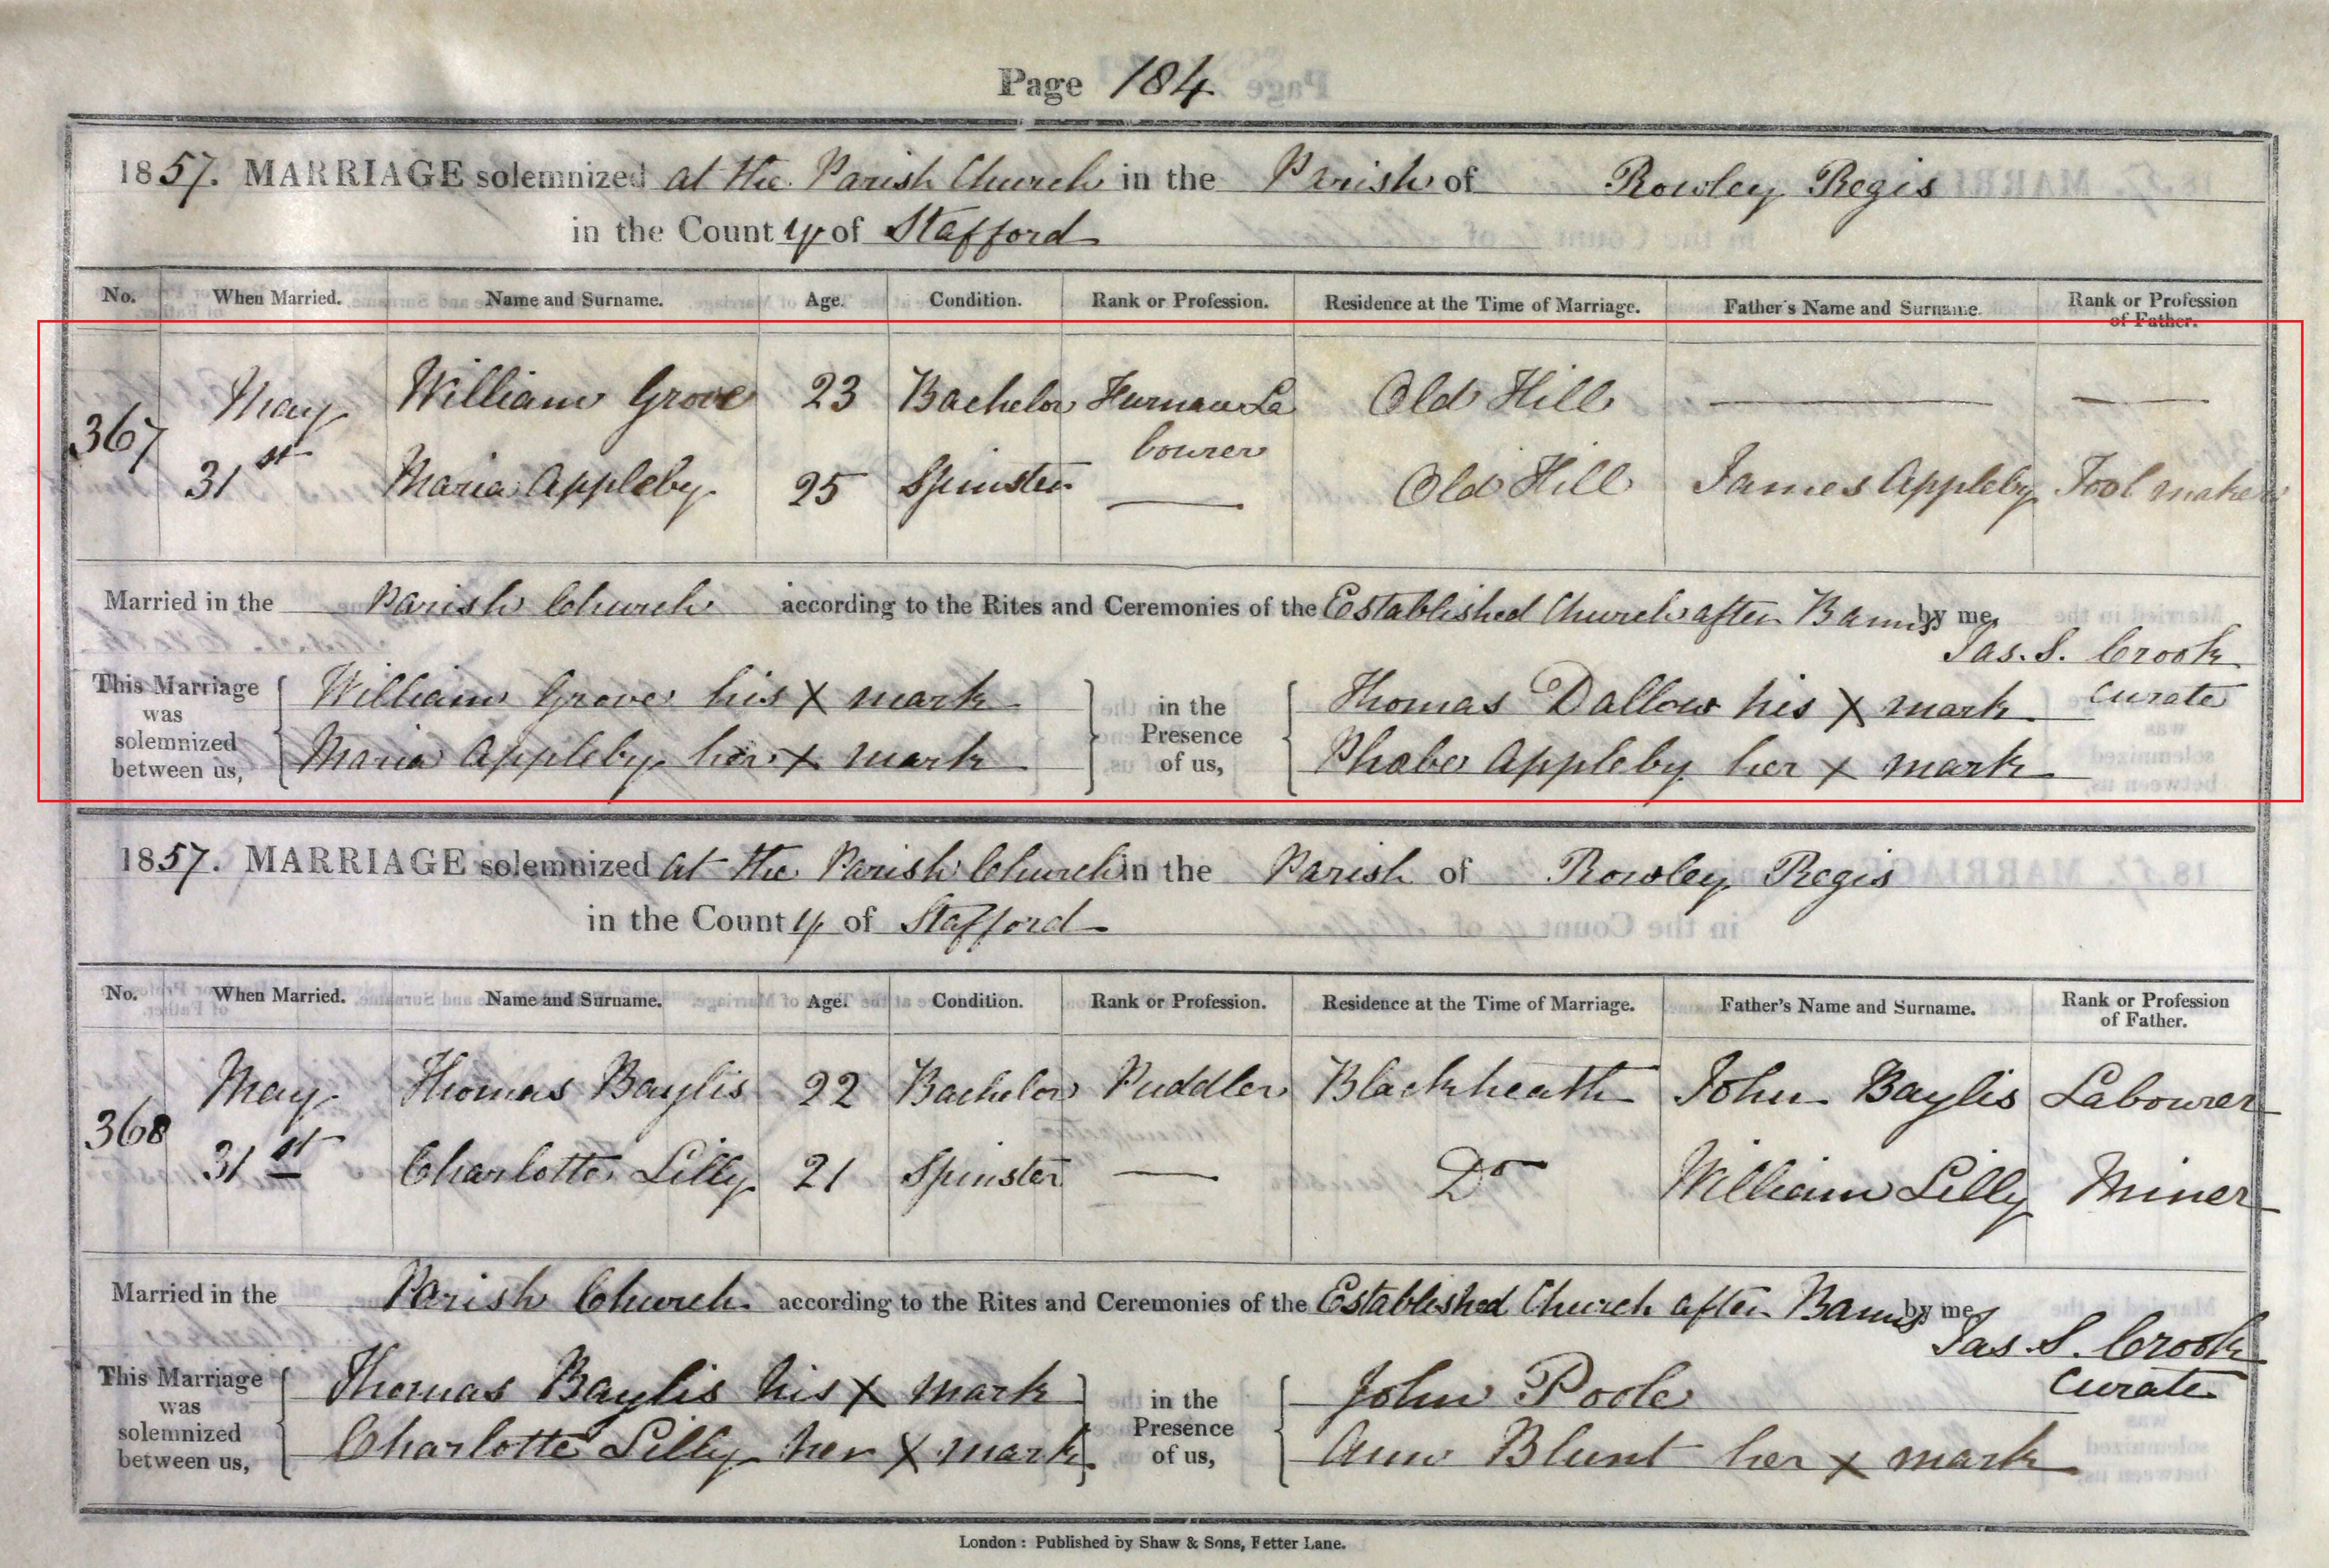 Page 184
1857. MARRIAGE solemnized at the Parish Church in the Parish of Rowley Regis
in the County of Stafford
No. When Married. Name and Surname. Age. Condition. Rank or Profession. Residence at the Time of Marriage. Father's Name and Surname. Rank or Profession of Father.
367 May 31st William Grove 23 Bachelor Furnace Labourer Old Hill — —
Maria Appleby 25 Spinster — Old Hill James Appleby Tool maker
Married in the Parish Church according to the Rites and Ceremonies of the Established Church after Banns by me,
Jas. S. Crook
Curate
This Marriage was solemnized between us, William Grove his X mark in the Presence of us, Thomas Dallow his X mark
Maria Appleby her X mark Phoebe Appleby her X mark
1857. MARRIAGE solemnized at the Parish Church in the Parish of Rowley Regis
in the County of Stafford
No. When Married. Name and Surname. Age. Condition. Rank or Profession. Residence at the Time of Marriage. Father's Name and Surname. Rank or Profession of Father.
368 May 31st Thomas Baylis 22 Bachelor Puddler Blackheath John Baylis Labourer
Charlotte Lilly 21 Spinster — Do William Lilly Miner
Married in the Parish Church according to the Rites and Ceremonies of the Established Church after Banns by me,
Jas. S. Crook
Curate
This Marriage was solemnized between us, Thomas Baylis his X mark in the Presence of us, John Poole
Charlotte Lilly her X mark Ann Blunt her X mark
London: Published by Shaw & Sons, Fetter Lane.